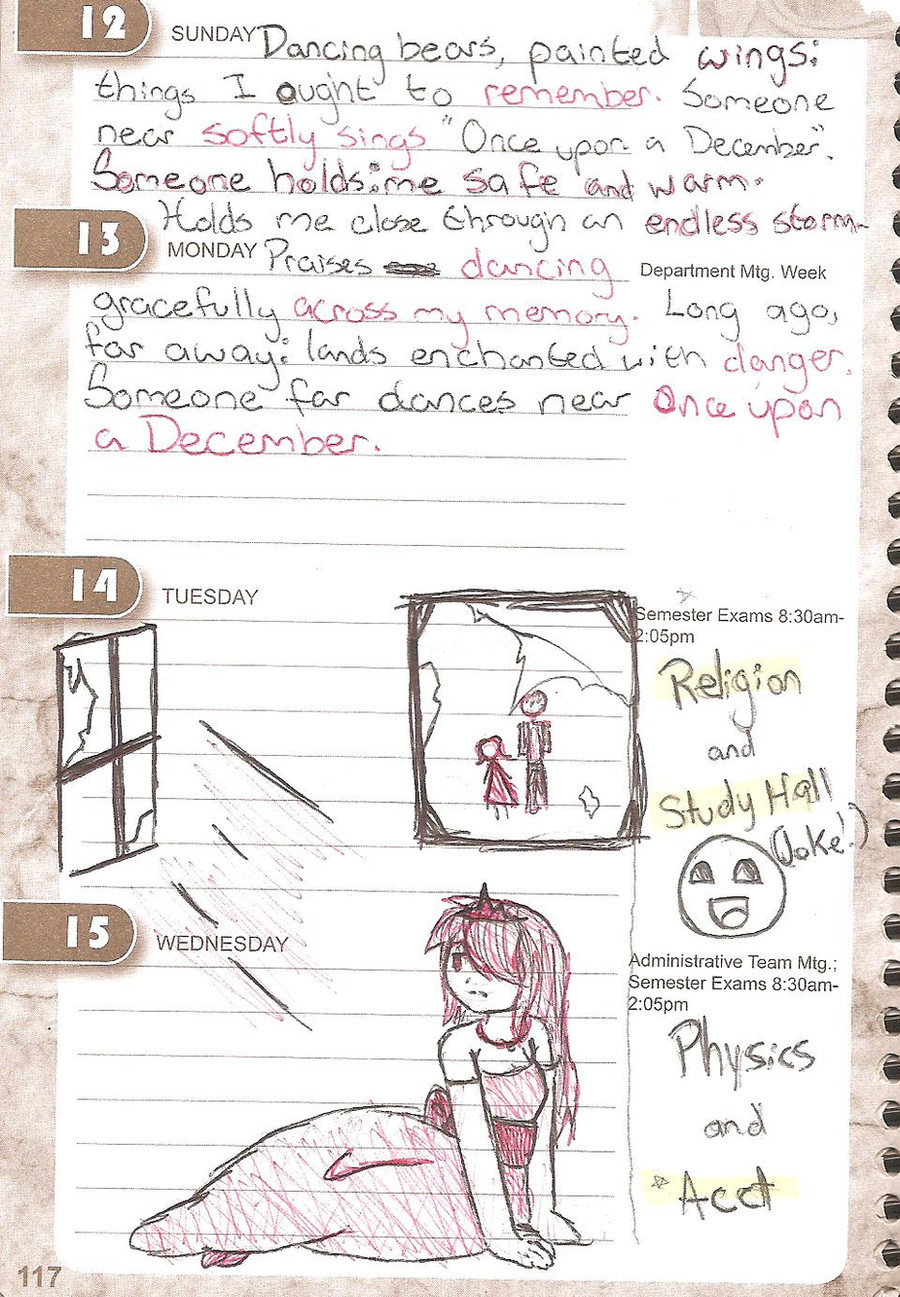 12
SUNDAY Dancing bears, painted wings:
things I ought to remember. Someone
near softly sings "Once upon a December".
Someone holds me safe and warm.
Holds me close through an endless storm-
13
MONDAY Praises dancing
Department Mtg. Week
gracefully across my memory. Long ago,
far away: lands enchanted with danger.
Someone far dances near Once upon
a December.
14
TUESDAY
Semester Exams 8:30am-
2:05pm
Religion
and
Study Hall
(Joke!)
15
WEDNESDAY
Administrative Team Mtg.;
Semester Exams 8:30am-
2:05pm
Physics
and
* Acct
117